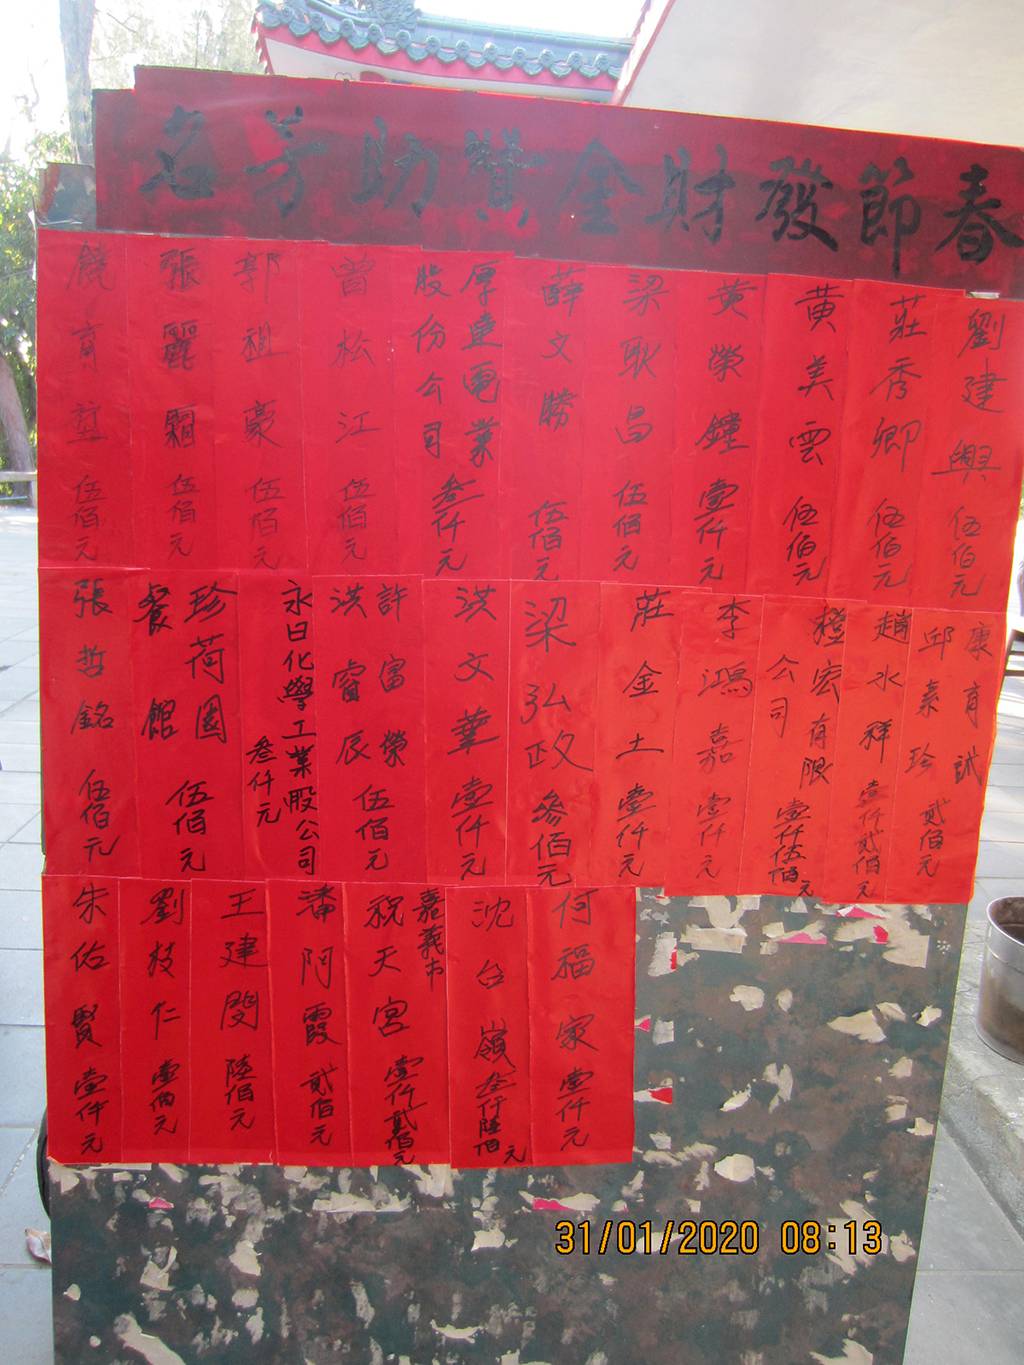 春節發財金贊助芳名
劉建興 伍佰元
莊秀卿 伍佰元
黃美雲 伍佰元
黃榮鐘 壹仟元
梁耿昌 伍佰元
薛文勝 伍佰元
厚達電業
股份公司 叁仟元
曾松江 伍佰元
郭祖豪 伍佰元
張麗霜 伍佰元
饒育 伍佰元
康育誠
邱素珍 貳佰元
趙水祥 壹仟貳佰元
橙宏有限
公司 壹仟伍佰元
李鴻嘉 壹仟元
莊金土 壹仟元
梁弘政 參佰元
洪文華 壹仟元
許富榮
洪睿辰 伍佰元
永日化學工業股公司
叁仟元
珍荷園
餐館 伍佰元
張哲銘 伍佰元
何福家 壹仟元
沈台嶺 叁仟陸佰元
嘉義市
祝天宮 壹仟貳佰元
潘阿霞 貳佰元
王建閔 陸佰元
劉枝仁 壹佰元
朱佑賢 壹仟元
31/01/2020 08:13